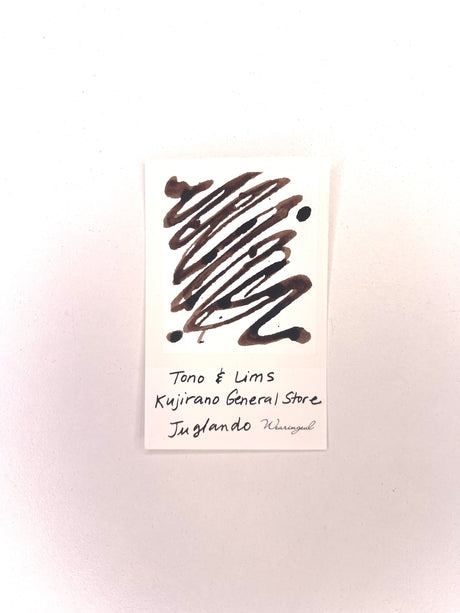 Tono & Lims
Kujirano General Store
Juglando Wearingeul